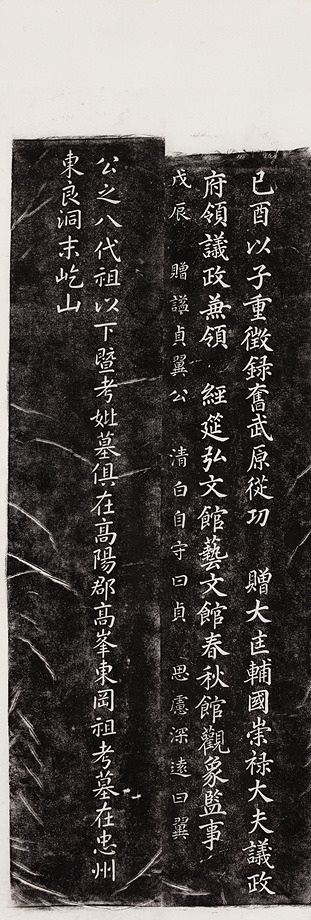 己酉以子重徵録奮武原從功 贈大匡輔國崇禄大夫議政
府領議政兼領 經筵弘文館藝文館春秋館觀象監事
戊辰 贈謚貞翼公 清白自守曰貞 思慮深遠曰翼
公之八代祖以下暨考妣墓俱在高陽郡高峯東岡祖考墓在忠州
東良洞末屹山